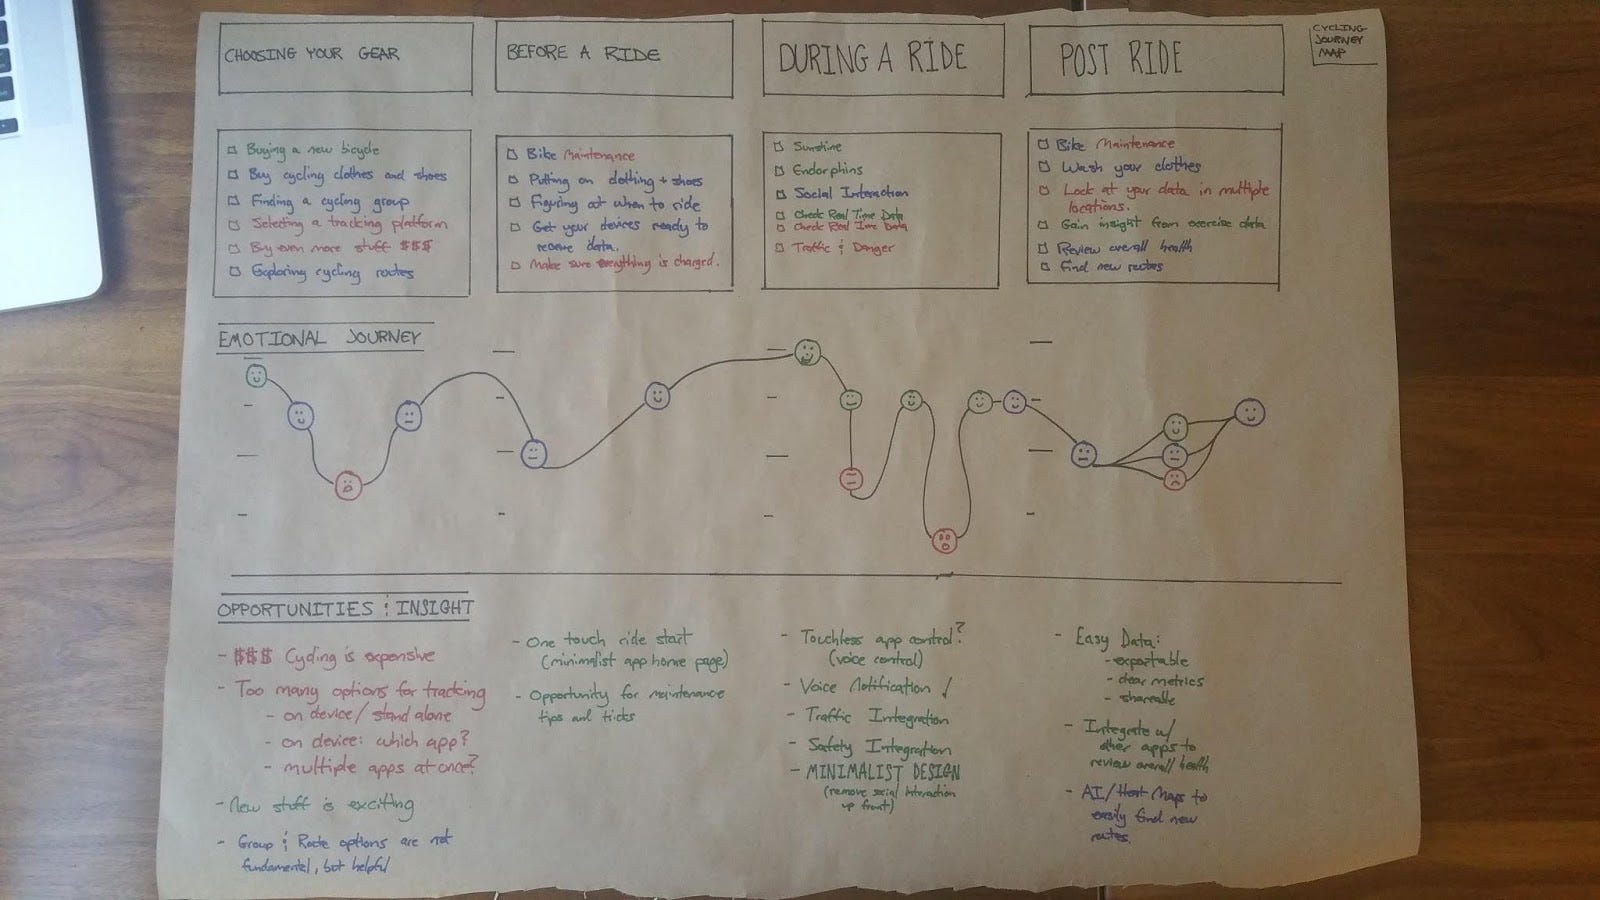 CYCLING
JOURNEY
MAP
CHOOSING YOUR GEAR
BEFORE A RIDE
DURING A RIDE
POST RIDE
Buying a new bicycle
Buy cycling clothes and shoes
Finding a cycling group
Selecting a tracking platform
Buy even more stuff $$$
Exploring cycling routes
Bike Maintenance
Putting on clothing + shoes
Figuring out when to ride
Get your devices ready to
receive data.
Make sure everything is charged.
Sunshine
Endorphins
Social Interaction
Check Real Time Data
Check Real Time Data
Traffic & Danger
Bike Maintenance
Wash your clothes
Look at your data in multiple
locations.
Gain insight from exercise data
Review overall health
Find new routes
EMOTIONAL JOURNEY
OPPORTUNITIES & INSIGHT
- $$$ Cycling is expensive
- Too many options for tracking
- on device/stand alone
- on device: which app?
- multiple apps at once?
- New stuff is exciting
- Group & Route options are not
fundamental, but helpful
- One touch ride start
(minimalist app home page)
- Opportunity for maintenance
tips and tricks
- Touchless app control?
(voice control)
- Voice Notification ✓
- Traffic Integration
- Safety Integration
- MINIMALIST DESIGN
(remove social interaction
up front)
- Easy Data:
- exportable
- clear metrics
- shareable
- Integrate w/
other apps to
review overall health
- AI/Heat Maps to
easily find new
routes.